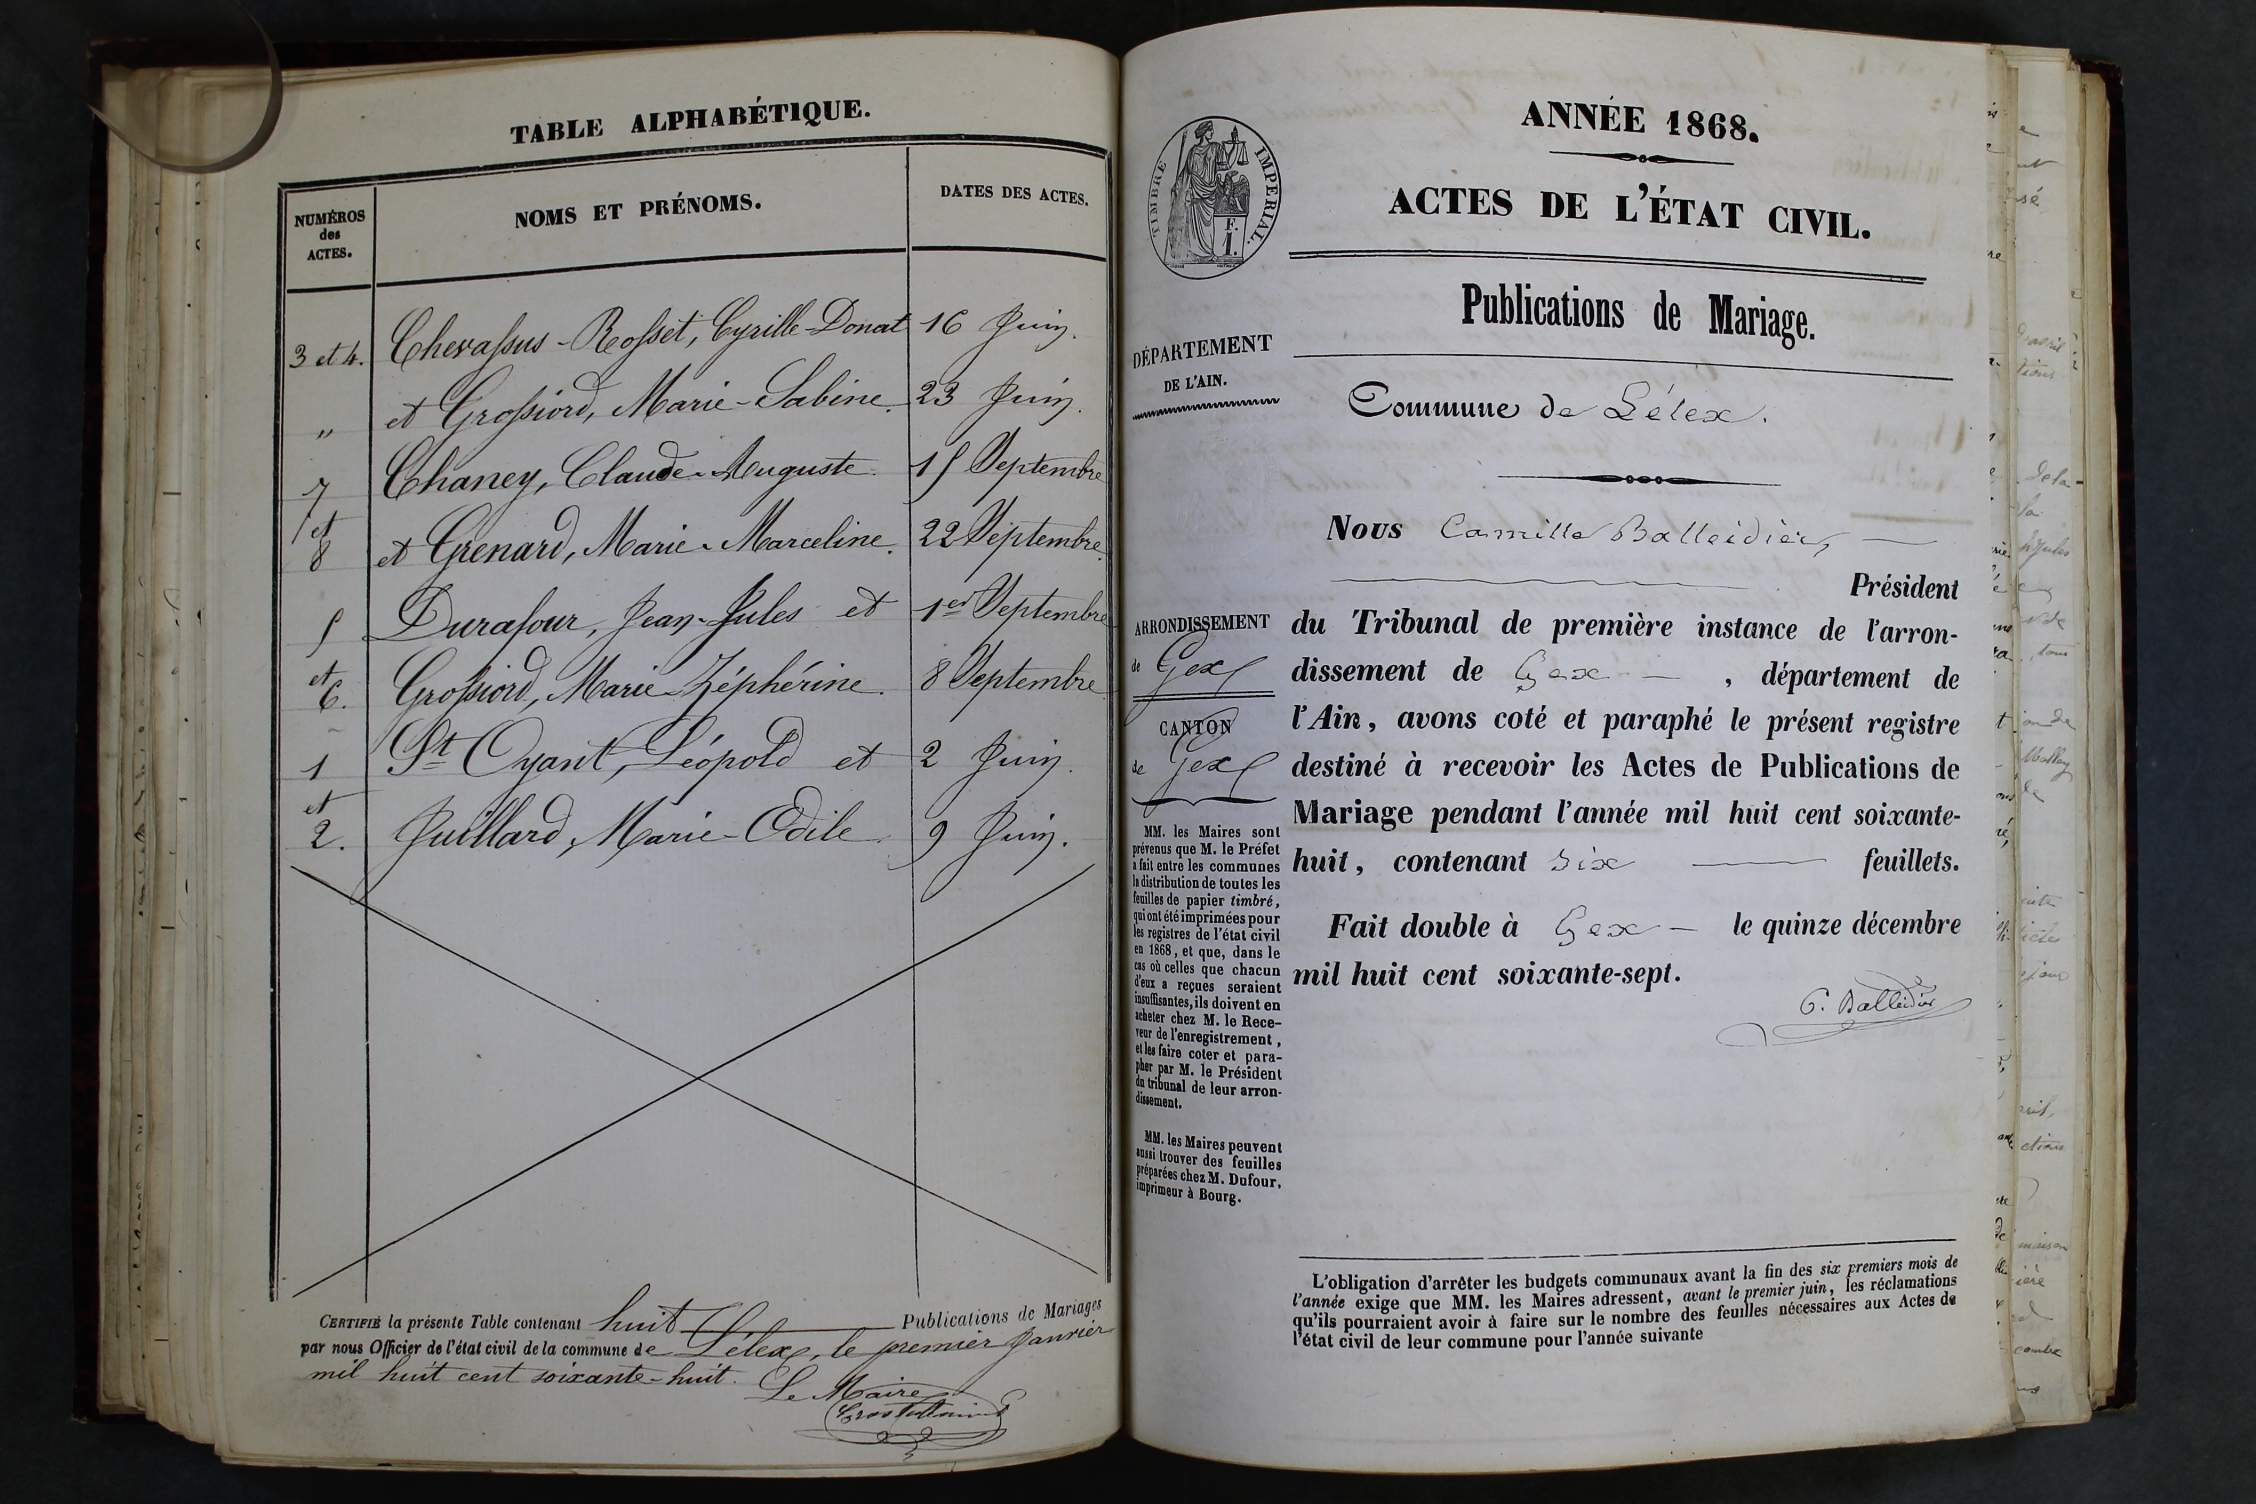 TABLE ALPHABÉTIQUE.
NUMÉROS
des
ACTES.
NOMS ET PRÉNOMS.
DATES DES ACTES.
3 et 4. Chevassus-Rosset, Cyrille-Donat 16 Juin.
„ et Grossiord, Marie-Sabine. 23 Juin.
7 Chaney, Claude-Auguste 15 Septembre
et
8 et Grenard, Marie-Marceline. 22 Septembre.
5 Durafour, Jean-Jules et 1er Septembre
et
6. Grossiord, Marie-Zéphérine. 8 Septembre
1 St Oyant, Léopold et 2 Juin.
et
2. Juillard, Marie-Odile 9 Juin.
CERTIFIÉ la présente Table contenant huit Publications de Mariages
par nous Officier de l'état civil de la commune de Lélex, le premier Janvier
mil huit cent soixante-huit.
Le Maire
TIMBRE IMPERIAL.
F.
1.
ANNÉE 1868.
ACTES DE L'ÉTAT CIVIL.
Publications de Mariage.
DÉPARTEMENT
DE L'AIN.
Commune de Lélex.
Nous Camille Balleidier,
Président
du Tribunal de première instance de l'arron-
dissement de Gex, département de
l'Ain, avons coté et paraphé le présent registre
destiné à recevoir les Actes de Publications de
Mariage pendant l'année mil huit cent soixante-
huit, contenant six feuillets.
Fait double à Gex le quinze décembre
mil huit cent soixante-sept.
C. Balleidier
ARRONDISSEMENT
de Gex
CANTON
de Gex
MM. les Maires sont
prévenus que M. le Préfet
a fait entre les communes
la distribution de toutes les
feuilles de papier timbré,
qui ont été imprimées pour
les registres de l'état civil
en 1868, et que, dans le
cas où celles que chacun
d'eux a reçues seraient
insuffisantes, ils doivent en
acheter chez M. le Rece-
veur de l'enregistrement,
et les faire coter et para-
pher par M. le Président
du tribunal de leur arron-
dissement.
MM. les Maires peuvent
aussi trouver des feuilles
préparées chez M. Dufour,
imprimeur à Bourg.
L'obligation d'arrêter les budgets communaux avant la fin des six premiers mois de
l'année exige que MM. les Maires adressent, avant le premier juin, les réclamations
qu'ils pourraient avoir à faire sur le nombre des feuilles nécessaires aux Actes de
l'état civil de leur commune pour l'année suivante